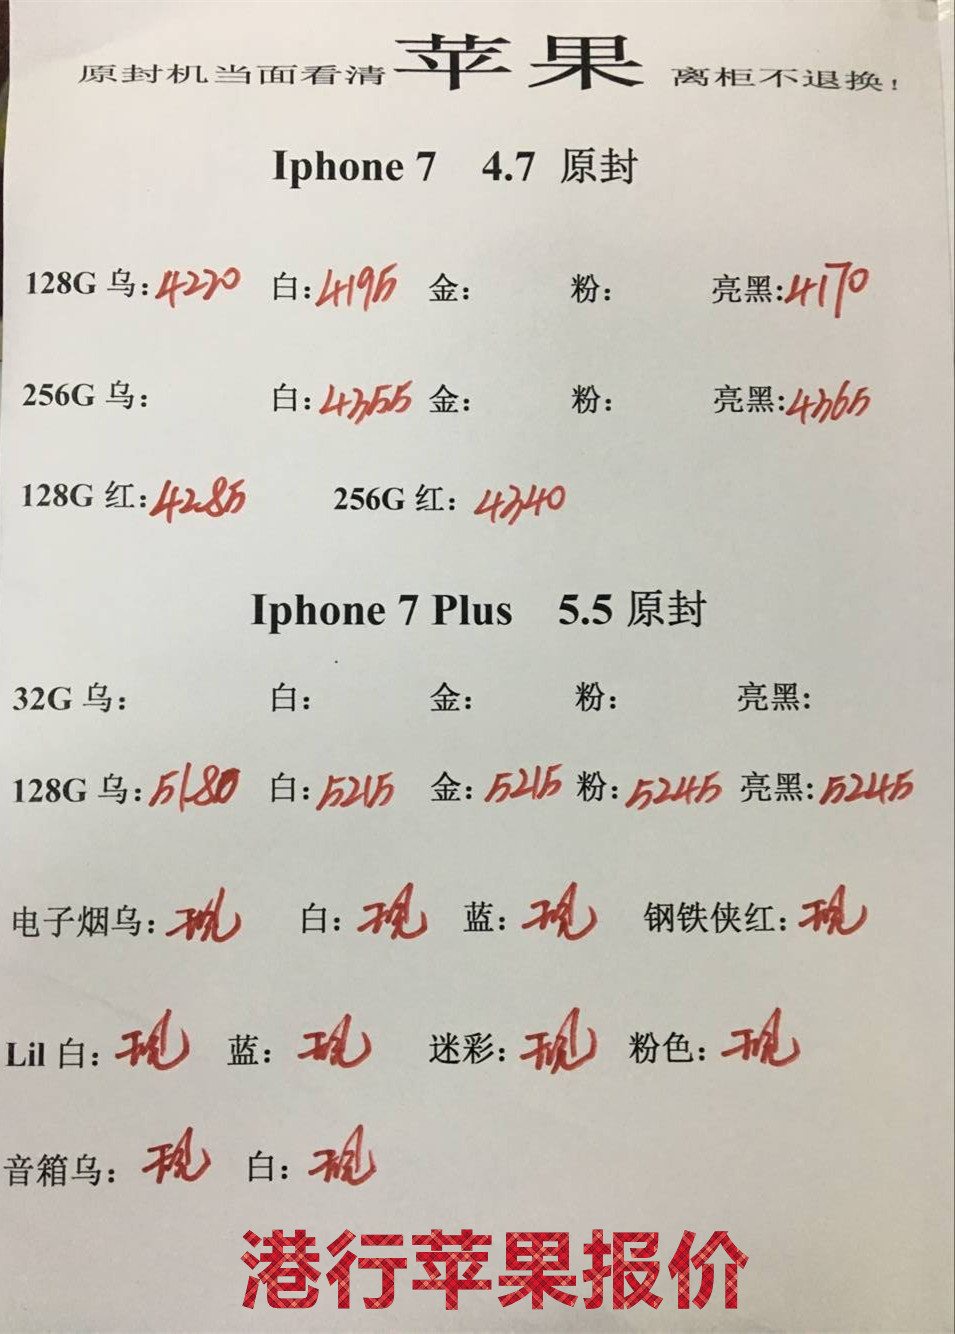 原封机当面看清 苹果 离柜不退换!
Iphone 7 4.7 原封
128G 乌: 4220 白: 4195 金: 粉: 亮黑: 4170
256G 乌: 白: 4355 金: 粉: 亮黑: 4365
128G 红: 4285 256G 红: 4340
Iphone 7 Plus 5.5 原封
32G 乌: 白: 金: 粉: 亮黑:
128G 乌: 5180 白: 5215 金: 5215 粉: 5245 亮黑: 5245
电子烟乌: 现 白: 现 蓝: 现 钢铁侠红: 现
Lil 白: 现 蓝: 现 迷彩: 现 粉色: 现
音箱乌: 现 白: 现
港行苹果报价